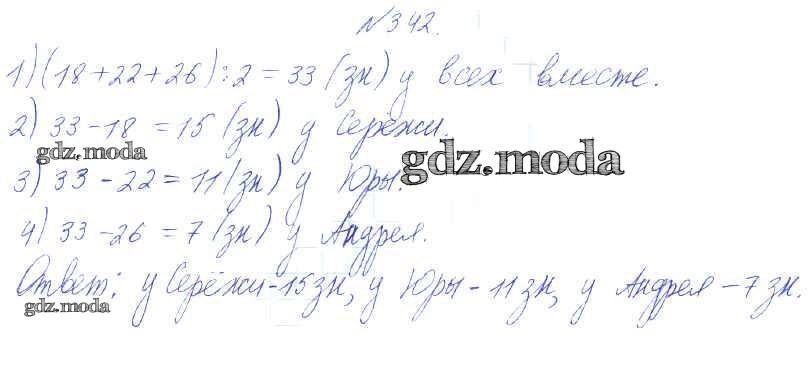 №342.
1) (18+22+26):2=33 (зн) у всех вместе.
2) 33-18=15 (зн) у Серёжи.
gdz.moda
gdz.moda
3) 33-22=11 (зн) у Юры.
4) 33-26=7 (зн) у Андрея.
Ответ: у Серёжи-15зн, у Юры-11зн, у Андрея-7зн.
gdz.moda